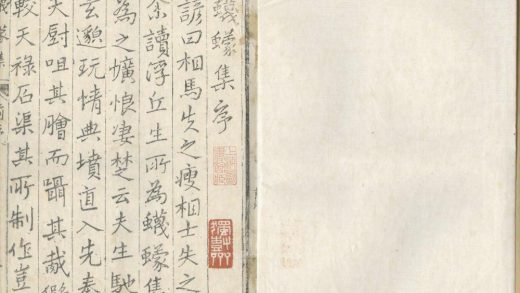 蠛蠓集序
諺曰相馬失之瘦相士失之
余讀浮丘生所為蠛蠓集
為之懭悢凄楚云夫生馳
玄邈玩情典墳直入先秦
天廚咀其膾而躡其胾
較天祿石渠其所制作豈